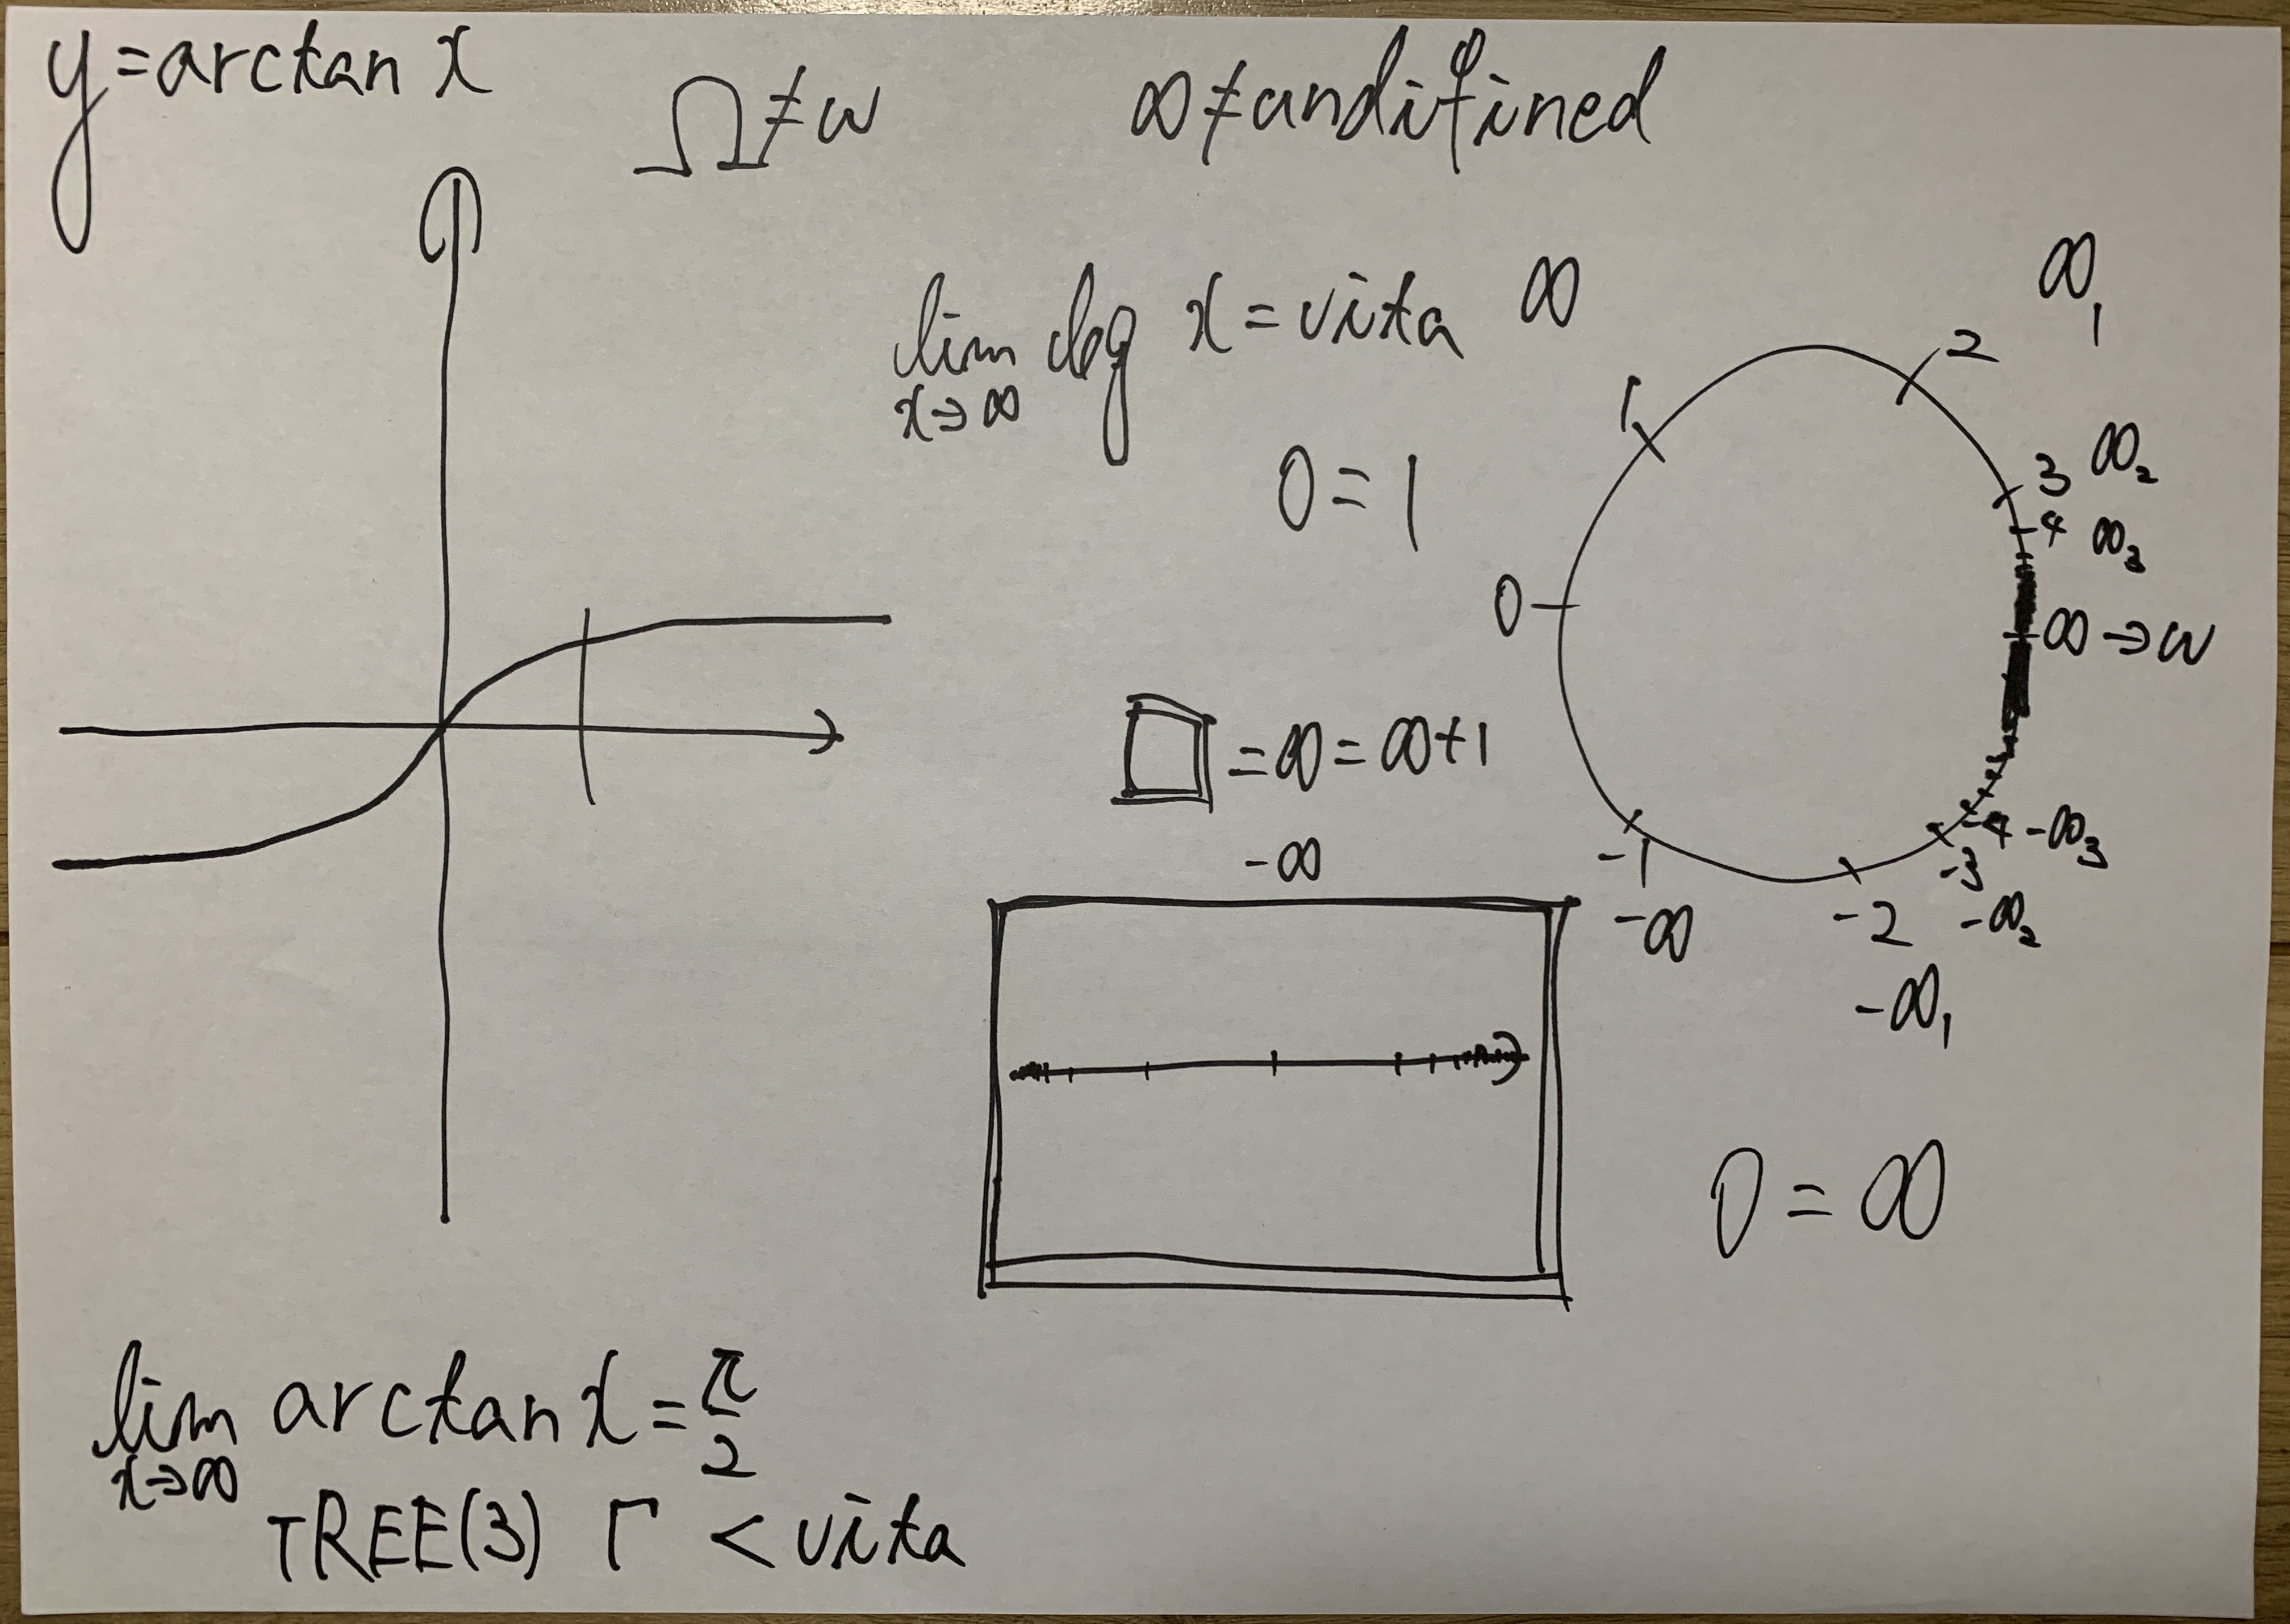 y=arctan x
Ω≠ω
∞≠andifined
lim log x=vita ∞
x→∞
0=1
∞₁
2
1
3 ∞₂
4 ∞₃
0
∞→ω
□=∞=∞+1
-∞
-4 -∞₃
-3
-1
-∞
-2 -∞₂
-∞₁
0=∞
lim arctan x=π/2
x→∞
TREE(3) Γ <vita